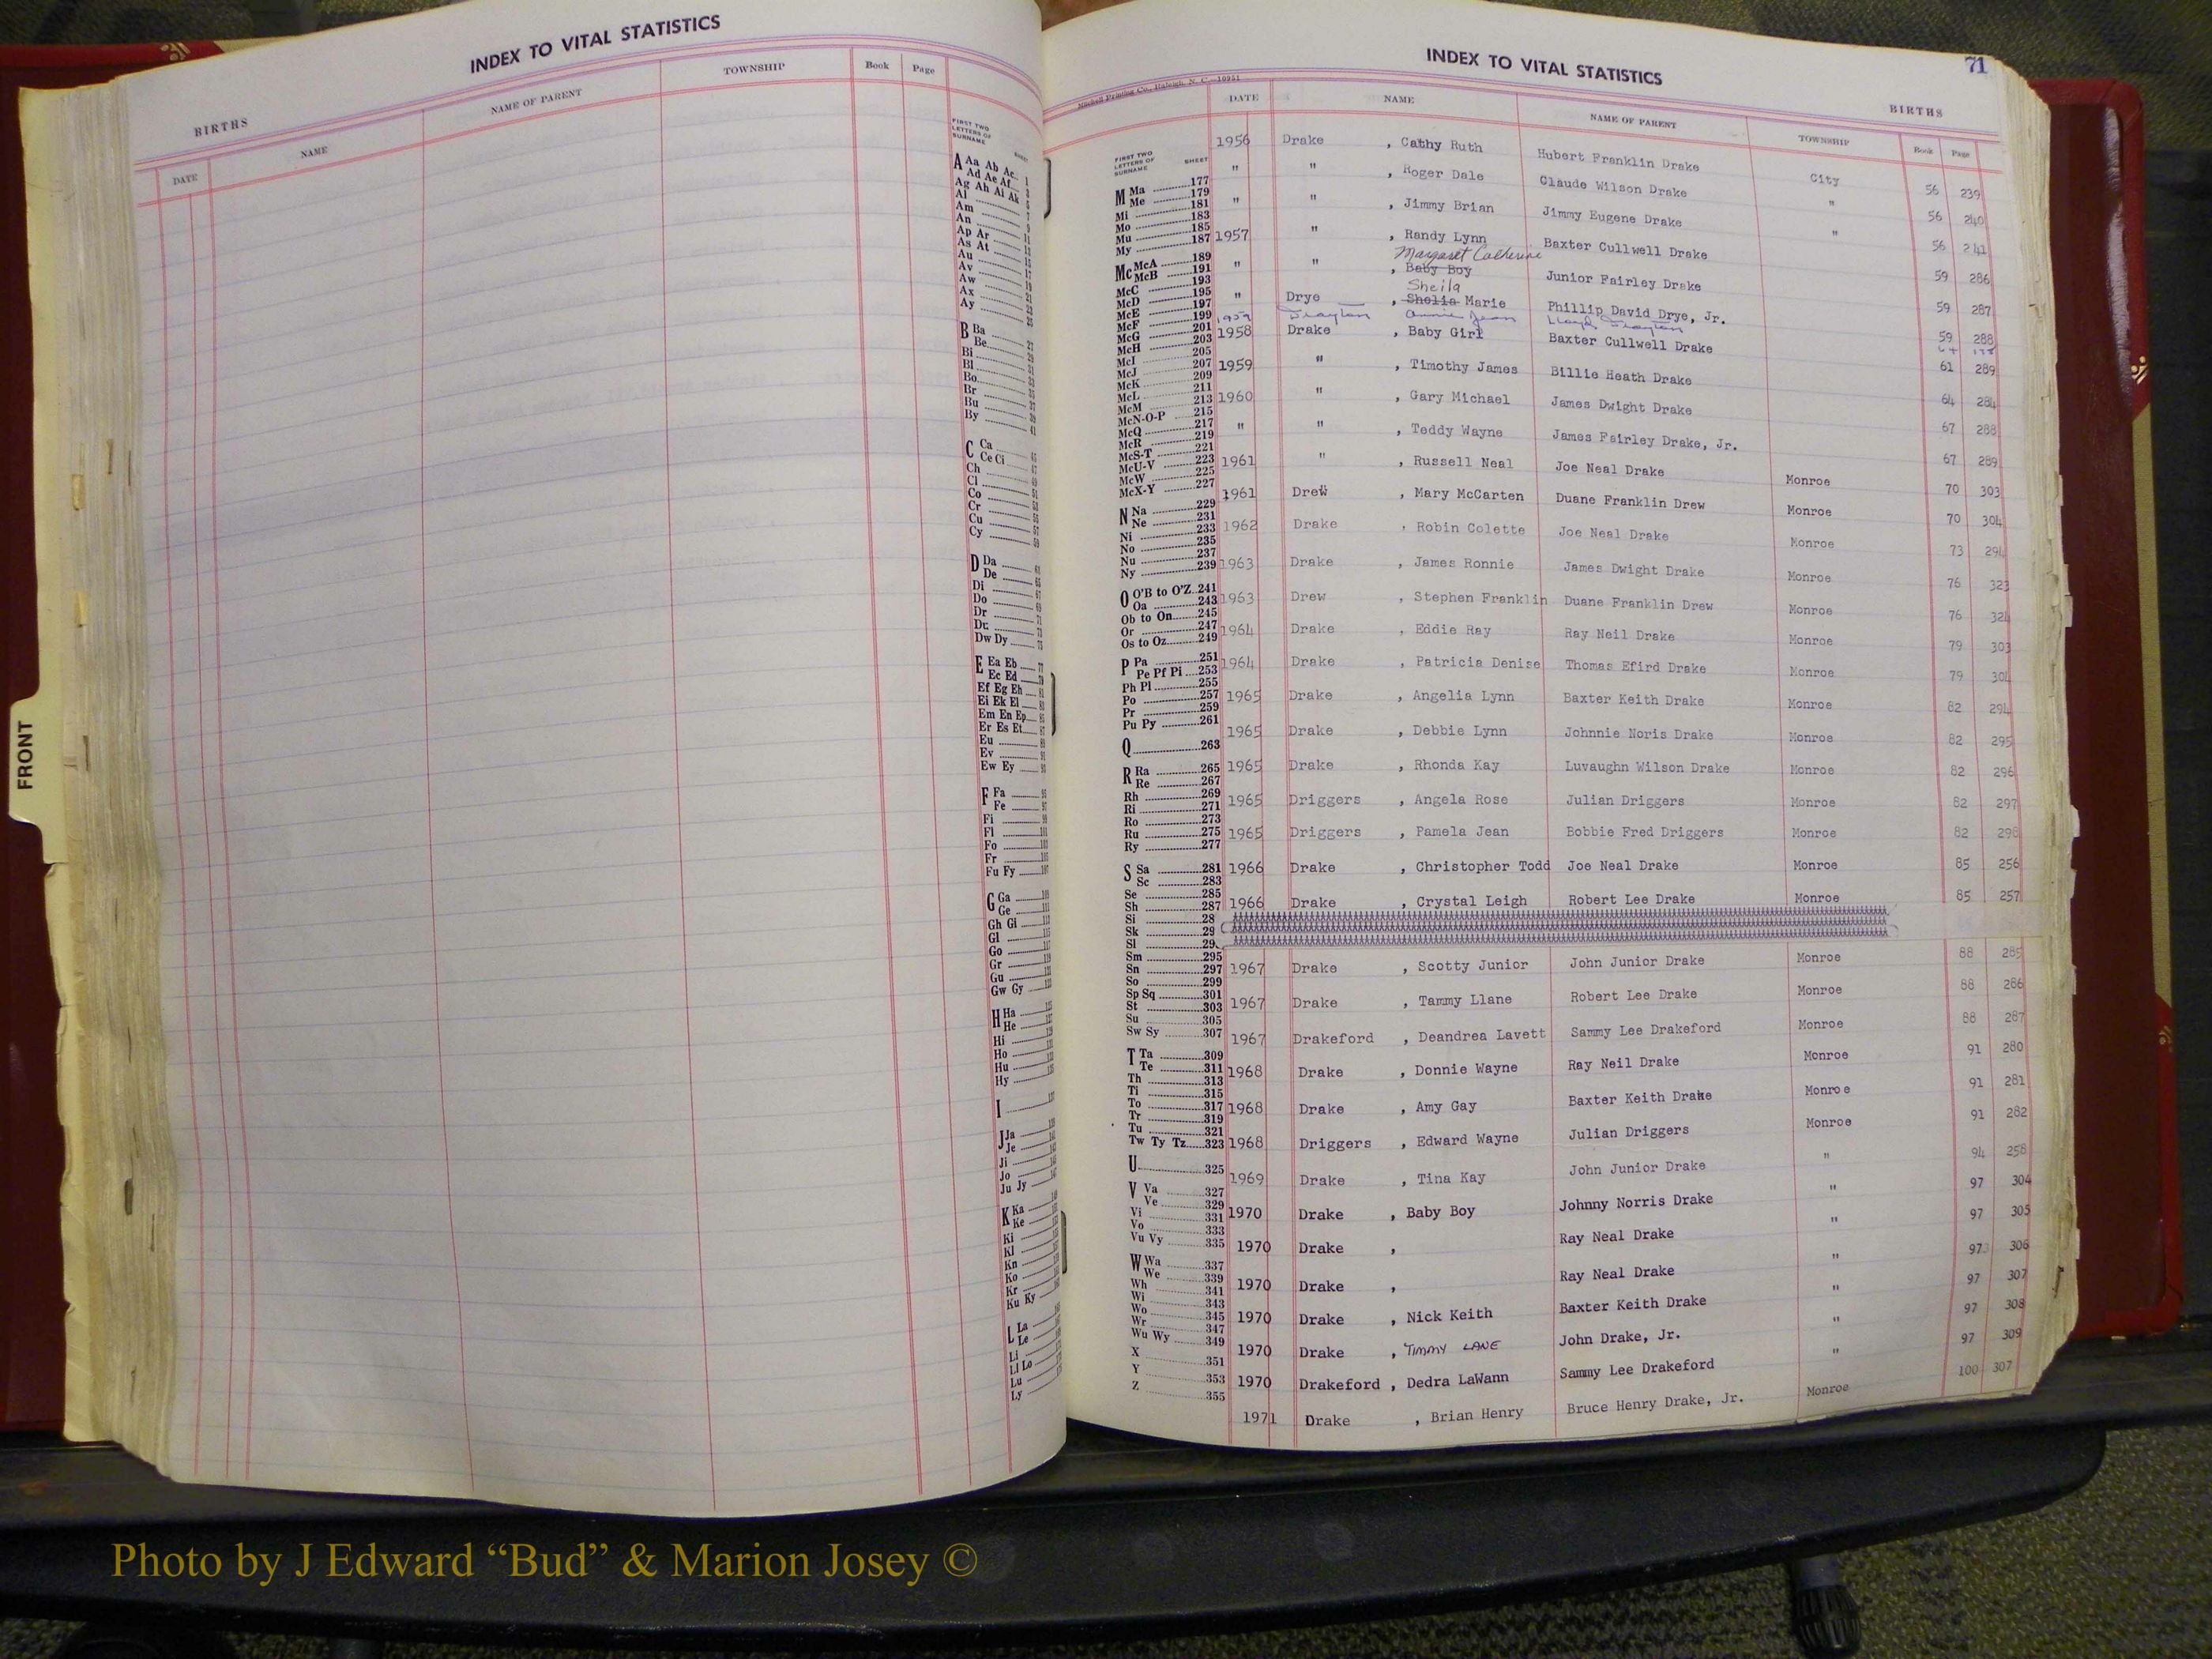 INDEX TO VITAL STATISTICS
BIRTHS
DATE NAME NAME OF PARENT TOWNSHIP Book Page
FIRST TWO
LETTERS OF
SURNAME SHEET
A Aa Ab Ac
Ad Ae Af
Ag Ah Ai Ak
Al
Am
An
Ap Ar
As At
Au
Av
Aw
Ax
Ay
B Ba
Be
Bi
Bl
Bo
Br
Bu
By
C Ca
Ce Ci
Ch
Cl
Co
Cr
Cu
Cy
D Da
De
Di
Do
Dr
Du
Dw Dy
E Ea Eb
Ec Ed
Ef Eg Eh
Ei Ek El
Em En Ep
Er Es Et
Eu
Ev
Ew Ey
F Fa
Fe
Fi
Fl
Fo
Fr
Fu Fy
G Ga
Ge
Gh Gi
Gl
Go
Gr
Gu
Gw Gy
H Ha
He
Hi
Ho
Hu
Hy
I
J Ja
Je
Ji
Jo
Ju Jy
K Ka
Ke
Ki
Kl
Kn
Ko
Kr
Ku Ky
L La
Le
Li
Ll Lo
Lu
Ly
FRONT
INDEX TO VITAL STATISTICS
71
Mitchell Printing Co., Raleigh, N. C.—10951
BIRTHS
DATE NAME NAME OF PARENT TOWNSHIP Book Page
FIRST TWO
LETTERS OF
SURNAME SHEET
M Ma 177
Me 179
Mi 181
Mo 183
Mu 185
My 187
Mc McA 189
McB 191
McC 193
McD 195
McE 197
McF 199
McG 201
McH 203
McI 205
McJ 207
McK 209
McL 211
McM 213
McN-O-P 215
McQ 217
McR 219
McS-T 221
McU-V 223
McW 225
McX-Y 227
N Na 229
Ne 231
Ni 233
No 235
Nu 237
Ny 239
O O'B to O'Z 241
Oa 243
Ob to On 245
Or 247
Os to Oz 249
P Pa 251
Pe Pf Pi 253
Ph Pl 255
Po 257
Pr 259
Pu Py 261
Q 263
R Ra 265
Re 267
Rh 269
Ri 271
Ro 273
Ru 275
Ry 277
S Sa 281
Sc 283
Se 285
Sh 287
Si 28
Sk 29
Sl 29
Sm 295
Sn 297
So 299
Sp Sq 301
St 303
Su 305
Sw Sy 307
T Ta 309
Te 311
Th 313
Ti 315
To 317
Tr 319
Tu 321
Tw Ty Tz 323
U 325
V Va 327
Ve 329
Vi 331
Vo 333
Vu Vy 335
W Wa 337
We 339
Wh 341
Wi 343
Wo 345
Wr 347
Wu Wy 349
X 351
Y 353
Z 355
1956 Drake , Cathy Ruth Hubert Franklin Drake City 56 239
" " , Roger Dale Claude Wilson Drake " 56 240
" " , Jimmy Brian Jimmy Eugene Drake " 56 241
1957 " , Randy Lynn Baxter Cullwell Drake 59 286
Margaret Catherine
" " , Baby Boy Junior Fairley Drake 59 287
Sheila
" Drye , Shelia Marie Phillip David Drye, Jr. 59 288
1959 Drayton Annie Jean Lloyd Drayton
1958 Drake , Baby Girl Baxter Cullwell Drake 61 289
1959 " , Timothy James Billie Heath Drake 64 284
1960 " , Gary Michael James Dwight Drake 67 288
" " , Teddy Wayne James Fairley Drake, Jr. 67 289
1961 " , Russell Neal Joe Neal Drake Monroe 70 303
1961 Drew , Mary McCarten Duane Franklin Drew Monroe 70 304
1962 Drake , Robin Colette Joe Neal Drake Monroe 73 294
1963 Drake , James Ronnie James Dwight Drake Monroe 76 323
1963 Drew , Stephen Franklin Duane Franklin Drew Monroe 76 324
1964 Drake , Eddie Ray Ray Neil Drake Monroe 79 303
1964 Drake , Patricia Denise Thomas Efird Drake Monroe 79 304
1965 Drake , Angelia Lynn Baxter Keith Drake Monroe 82 294
1965 Drake , Debbie Lynn Johnnie Noris Drake Monroe 82 295
1965 Drake , Rhonda Kay Luvaughn Wilson Drake Monroe 82 296
1965 Driggers , Angela Rose Julian Driggers Monroe 82 297
1965 Driggers , Pamela Jean Bobbie Fred Driggers Monroe 82 298
1966 Drake , Christopher Todd Joe Neal Drake Monroe 85 256
1966 Drake , Crystal Leigh Robert Lee Drake Monroe 85 257
1967 Drake , Scotty Junior John Junior Drake Monroe 88 285
1967 Drake , Tammy Llane Robert Lee Drake Monroe 88 286
1967 Drakeford , Deandrea Lavett Sammy Lee Drakeford Monroe 88 287
1968 Drake , Donnie Wayne Ray Neil Drake Monroe 91 280
1968 Drake , Amy Gay Baxter Keith Drake Monroe 91 281
1968 Driggers , Edward Wayne Julian Driggers Monroe 91 282
1969 Drake , Tina Kay John Junior Drake " 94 258
1970 Drake , Baby Boy Johnny Norris Drake " 97 304
1970 Drake , Ray Neal Drake " 97 305
1970 Drake , Ray Neal Drake " 97 306
1970 Drake , Nick Keith Baxter Keith Drake " 97 307
1970 Drake , TIMMY LANE John Drake, Jr. " 97 308
1970 Drakeford , Dedra LaWann Sammy Lee Drakeford " 97 309
1971 Drake , Brian Henry Bruce Henry Drake, Jr. Monroe 100 307
Photo by J Edward “Bud” & Marion Josey ©